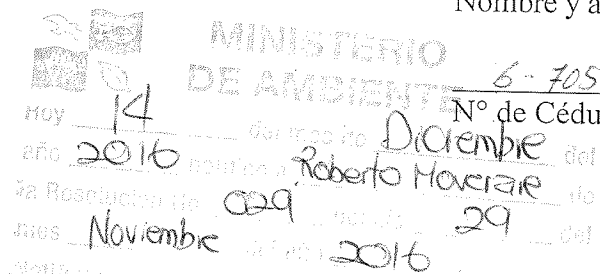 Nombre y a
MINISTERIO
DE AMBIENTE
6-705
N° de Cédu
Hoy 14 del mes de Diciembre del
año 2016 notifico a Roberto de
la Resolución No 029 29 del
mes Noviembre 2016